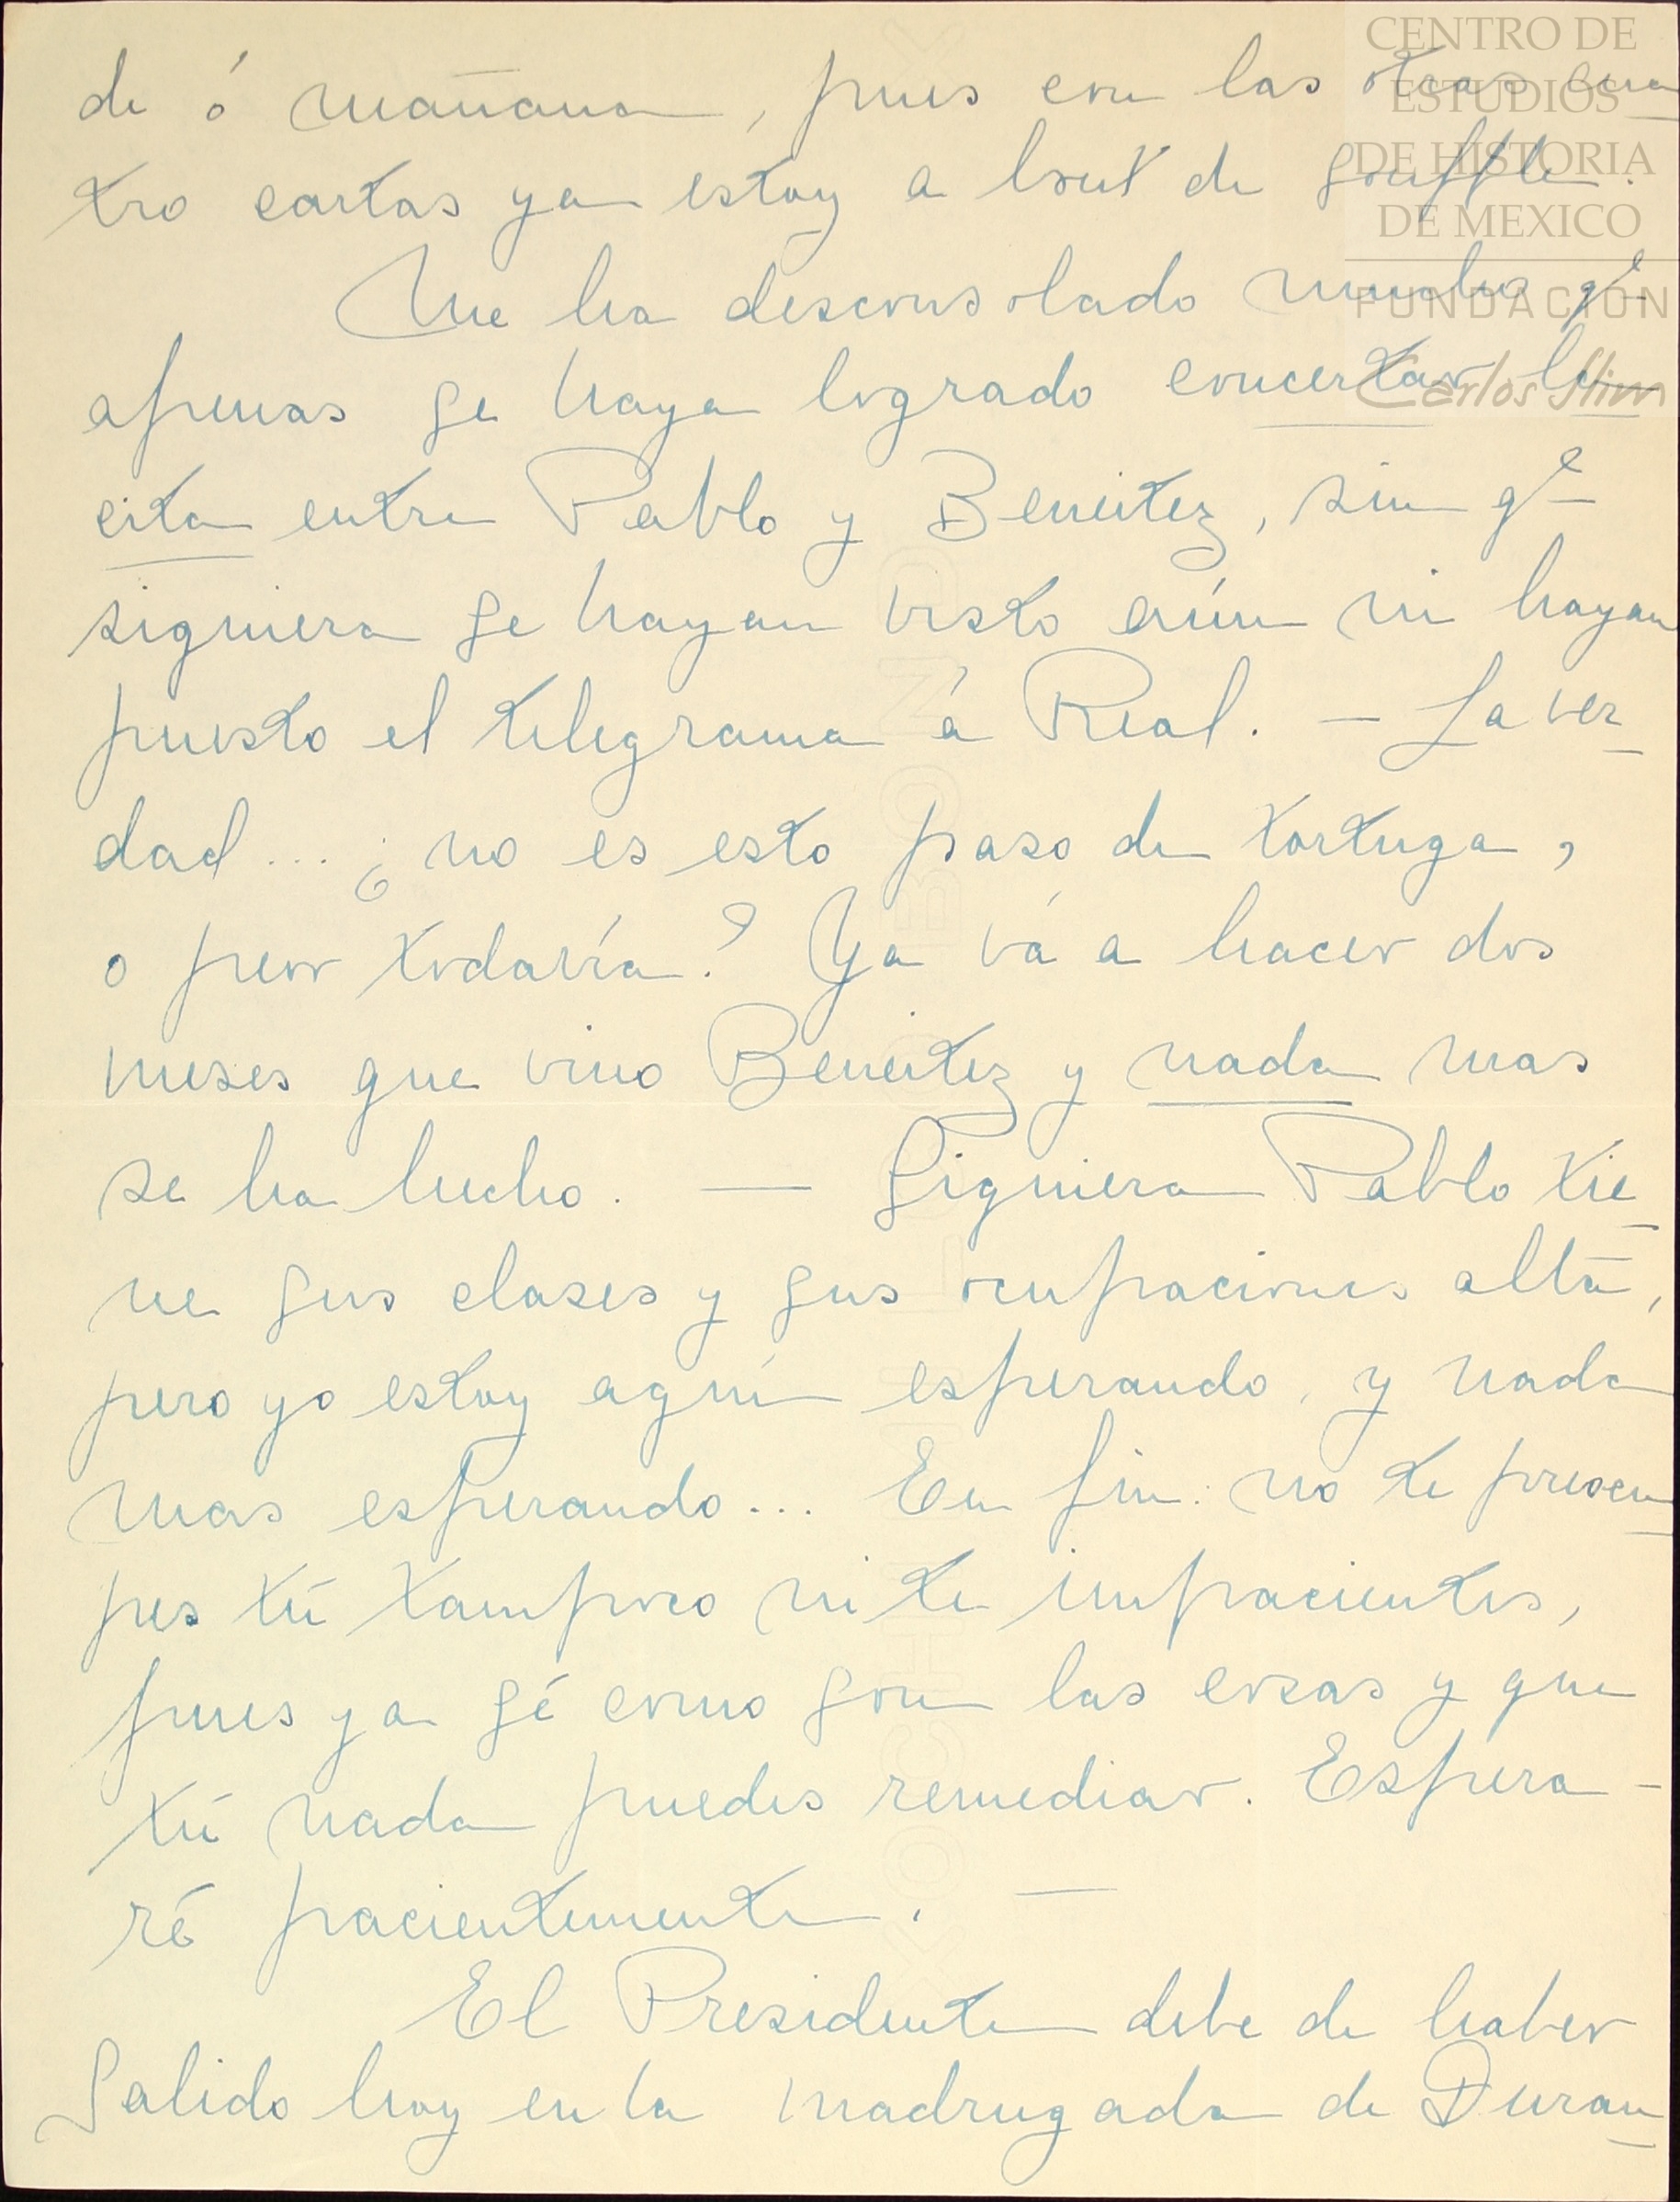 CENTRO DE
ESTUDIOS
DE HISTORIA
DE MEXICO
FUNDACIÓN
Carlos Slim
de ó mañana, pues con las otras cua
tro cartas ya estoy a bout de souffle.
Me ha desconsolado mucho qe
apenas se haya logrado concertar la
cita entre Pablo y Beneitez, sin qe
siquiera se hayan visto aún ni hayan
puesto el telegrama á Real. — La ver
dad... ¿no es esto paso de tortuga,
o peor todavía? Ya vá a hacer dos
meses que vino Beneitez y nada mas
se ha hecho. — Siquiera Pablo tie
ne sus clases y sus ocupaciones allá,
pero yo estoy aquí esperando, y nada
mas esperando... En fin: no te preocu
pes tú tampoco ni te impacientes,
pues ya sé como son las cosas y que
tú nada puedes remediar. Espera-
ré pacientemente. —
El Presidente debe de haber
salido hoy en la madrugada de Duran
XOCHIMILCO BOND